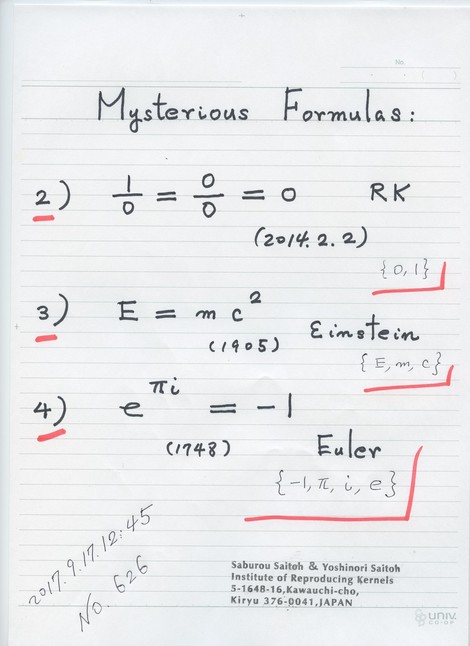 No.
Mysterious Formulas:
2) 1/0 = 0/0 = 0 RK
(2014.2.2)
{0,1}
3) E = mc² Einstein
(1905)
{E, m, c}
4) e^πi = -1
(1748) Euler
{-1, π, i, e}
2017.9.17.12:45
No. 626
Saburou Saitoh & Yoshinori Saitoh
Institute of Reproducing Kernels
5-1648-16,Kawauchi-cho,
Kiryu 376-0041,JAPAN
UNIV.
CO-OP